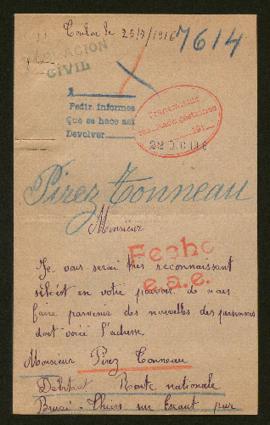 Toulon le 25/9/1916
7614
POBLACION
CIVIL
Pedir informes
Que se hace así
Devolver
191
22 DIC 1916
Pirez Tonneau
Monsieur
Fecho
e.a.e.
Je vous serai très reconnaissant
s'il est en votre pouvoir de nous
faire parvenir des nouvelles des personnes
dont voici l'adresse.
Monsieur Pirez Tonneau
Débitant Route nationale
Bruai - Thiers sur Escaut par